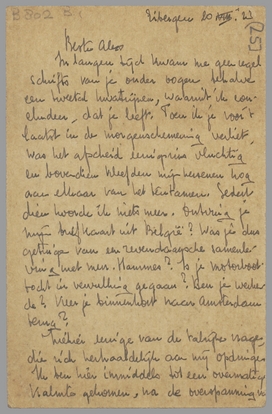 B 802 B
Eibergen 20 VIII. 23
Beste Alex
In langen tijd kwam me geen regel
schrifts van je onder oogen behalve
een tweetal kwatrijnen, waaruit ik con-
cludeer, dat je leeft. Toen ik je voor 't
laatst in de morgenschemering verliet
was het afscheid lenigszins vluchtig
en bovendien kleefden mijn hersenen nog
aan elkaar van het tentamen. Sedert
dien hoorde ik niets meer. Ontving je
mijn briefkaart uit België? Was je dus
getuige van een zevendaagsche samenle-
ving met mevr. Hammes? Is je motorboot-
tocht in vervulling gegaan? Ben je weder
de? Keer je binnenkort naar Amsterdam
terug?
Ziehier eenige van de talrijke vragen,
die zich herhaaldelijk aan mij opdringen.
Ik ben hier inmiddels tot een overmatige
kalmte gekomen, na de overspanning